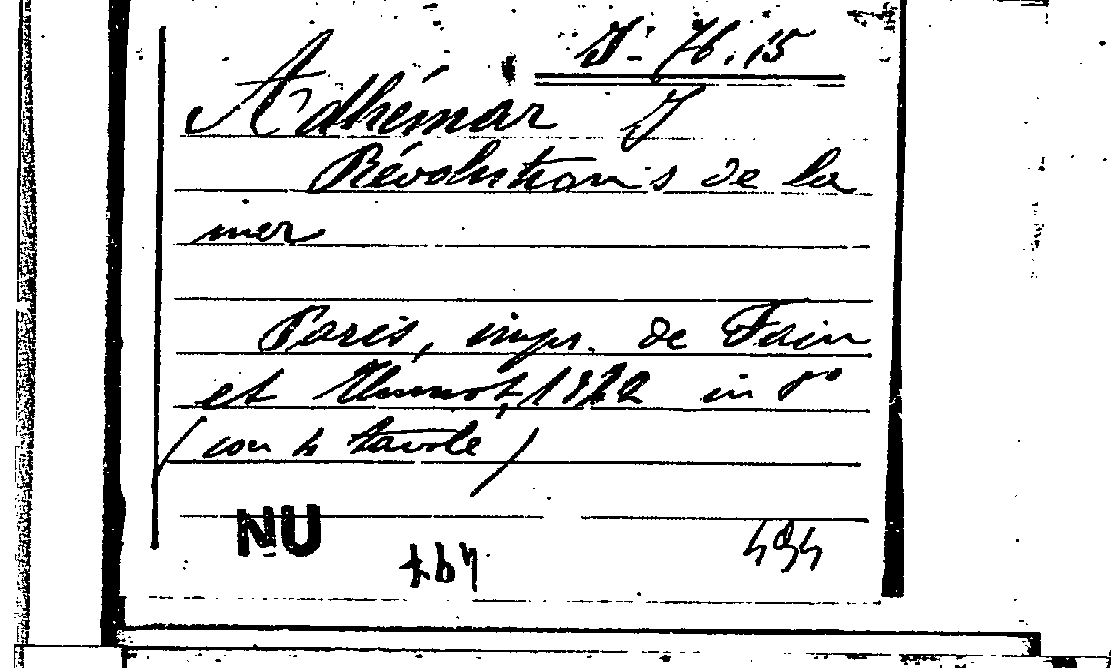 J- 76.15
Adhémar J
Révolutions de la
mer
Paris, impr. de Fain
et Thunot, 1842 in 8°
(con 4 tavole)
NU
494